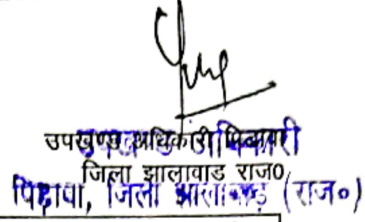 उपखण्ड अधिकारी पिडावा
जिला झालावाड राज0
पिड़ावा, जिला झालावाड़ (राज०)